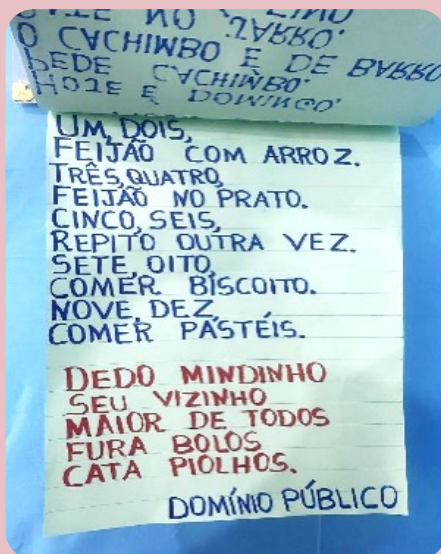 HOJE É DOMINGO.
PEDE CACHIMBO.
O CACHIMBO É DE BARRO
BATE NO JARRO.
UM, DOIS,
FEIJÃO COM ARROZ.
TRÊS, QUATRO,
FEIJÃO NO PRATO.
CINCO, SEIS,
REPITO OUTRA VEZ.
SETE, OITO,
COMER BISCOITO.
NOVE, DEZ,
COMER PASTÉIS.
DEDO MINDINHO
SEU VIZINHO
MAIOR DE TODOS
FURA BOLOS
CATA PIOLHOS.
DOMÍNIO PÚBLICO